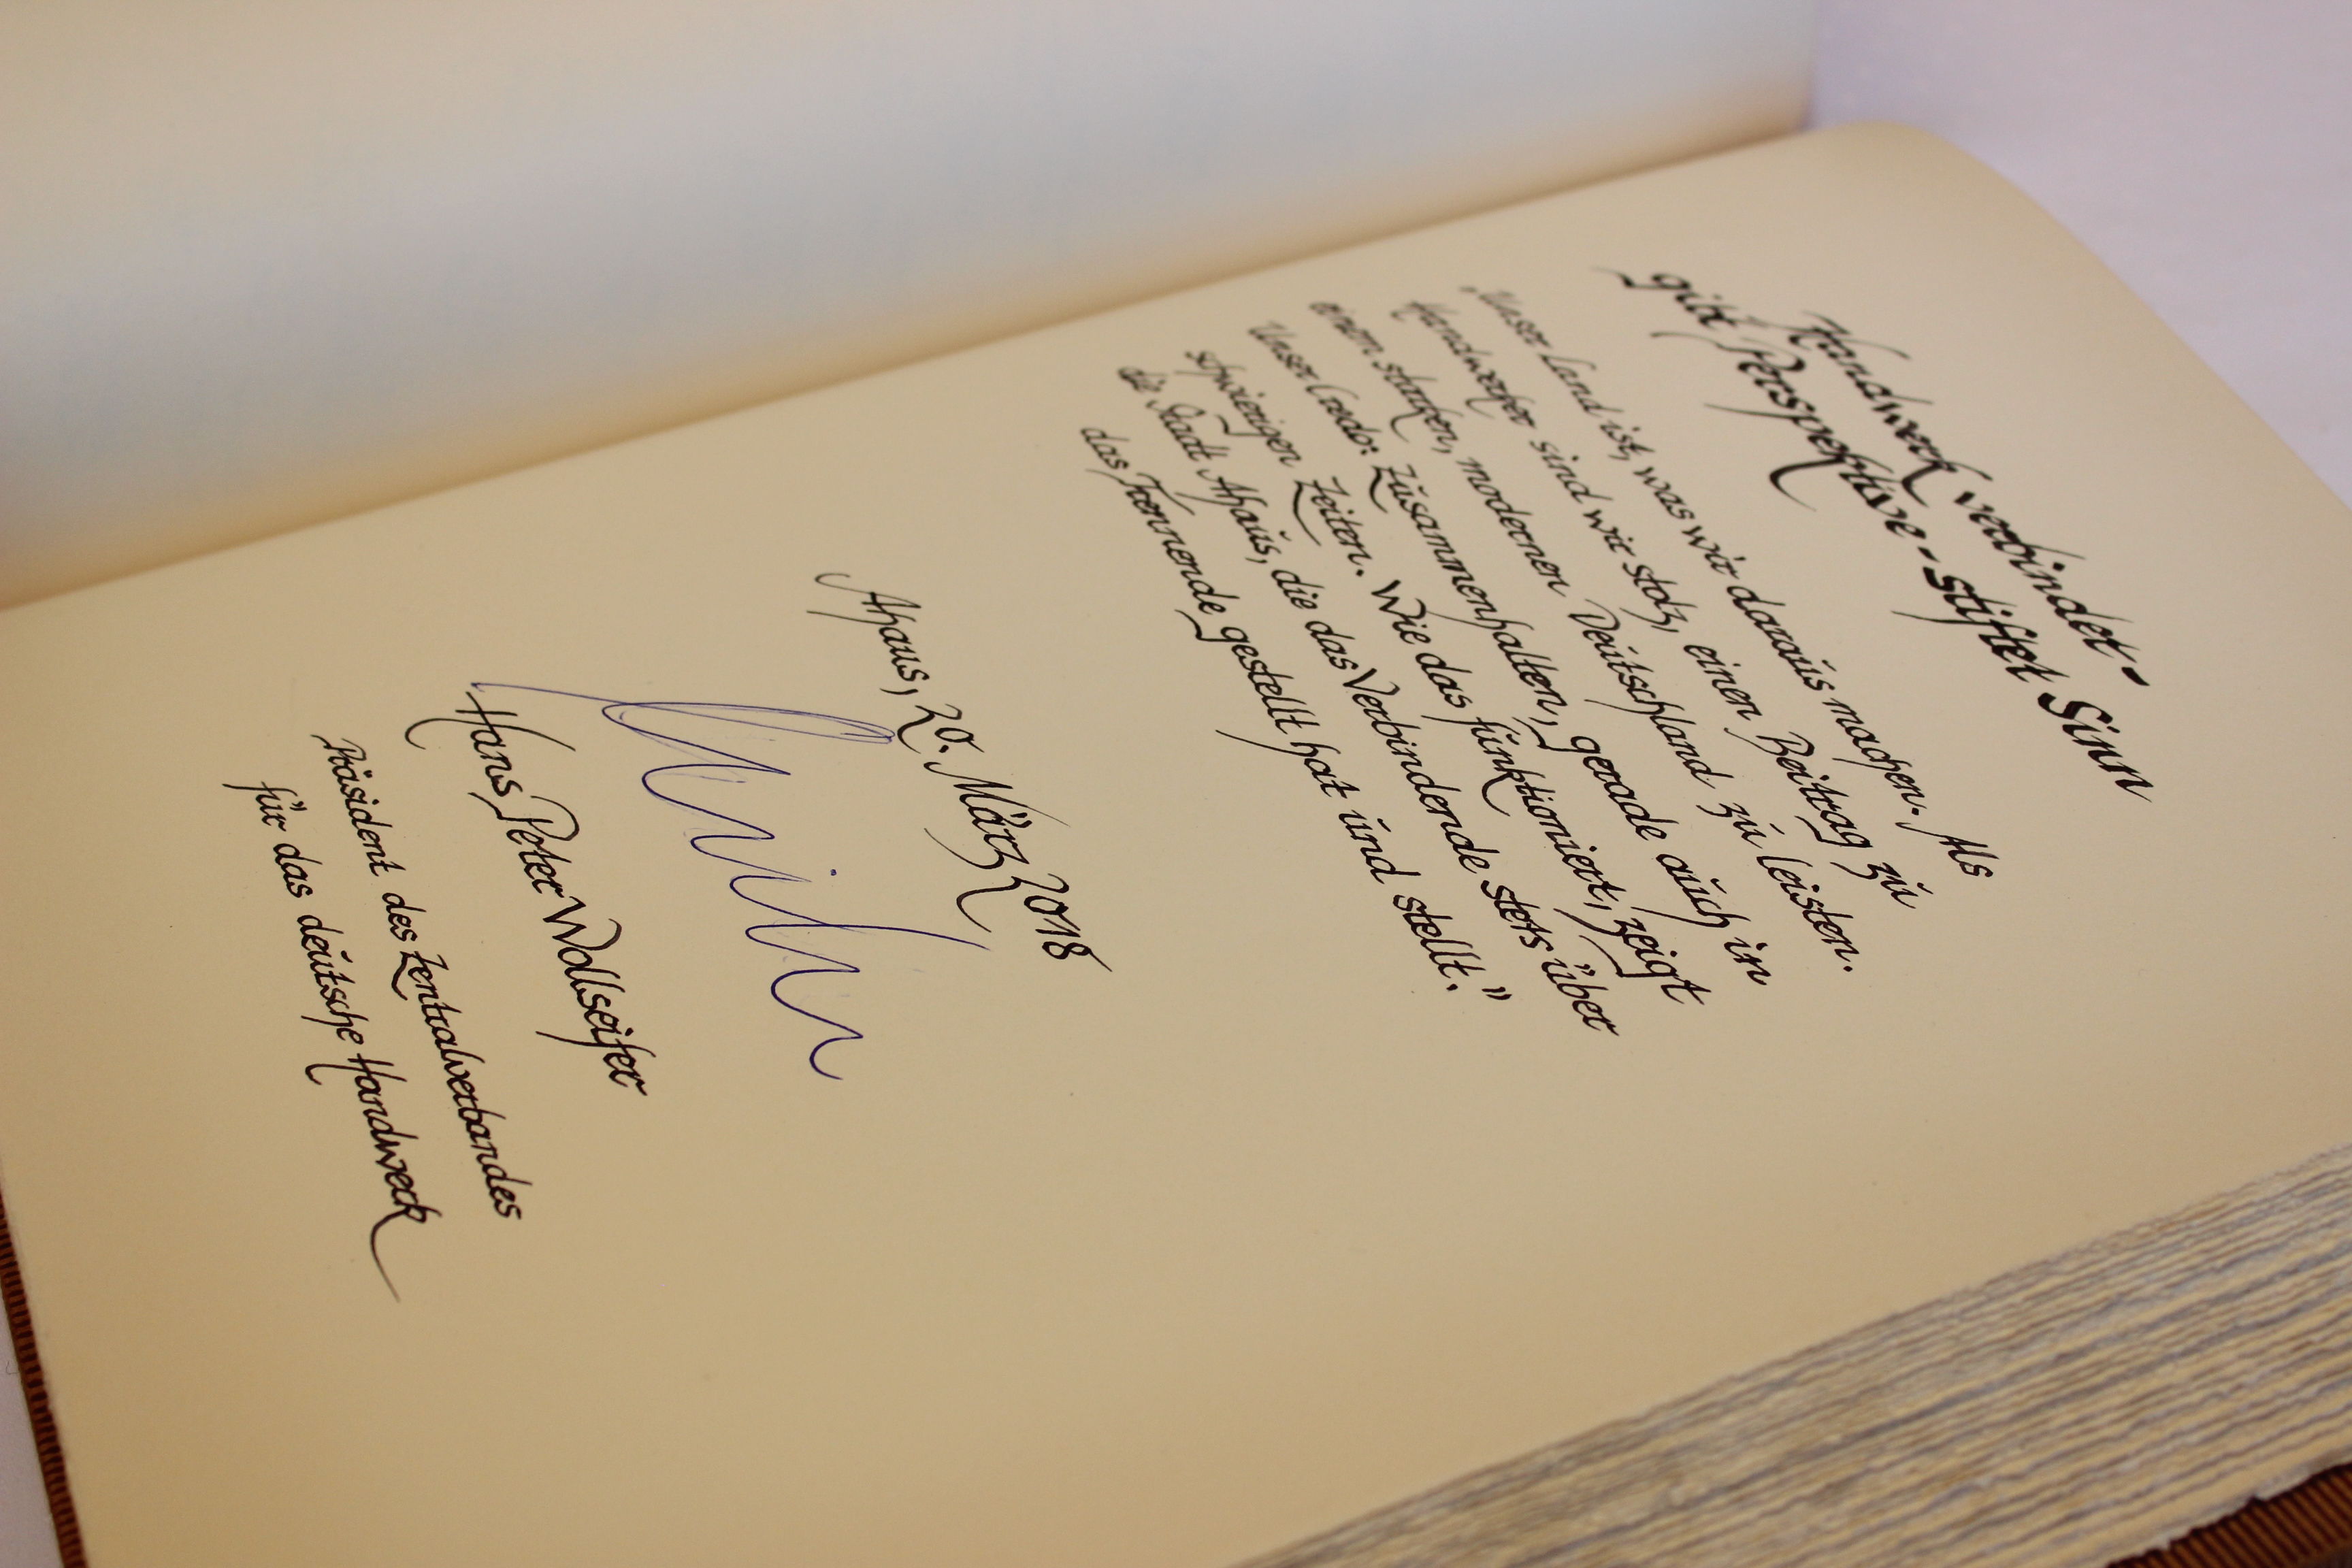 Handwerk verbindet -
gibt Perspektive - stiftet Sinn
„Unser Land ist, was wir daraus machen. Als
Handwerker sind wir stolz, einen Beitrag zu
einem starken, modernen Deutschland zu leisten.
Unser Credo: Zusammenhalten, gerade auch in
schwierigen Zeiten. Wie das funktioniert, zeigt
die Stadt Ahaus, die das Verbindende stets über
das Trennende gestellt hat und stellt."
Ahaus, 20. März 2018
Hans Peter Wollseifer
Präsident des Zentralverbandes
für das deutsche Handwerk